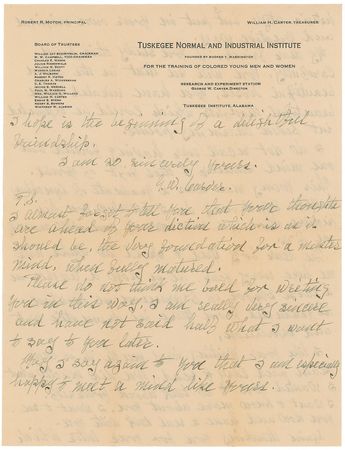 Robert R. Moton, Principal
William H. Carter, Treasurer
Tuskegee Normal and Industrial Institute
Founded by Booker T. Washington
For the Training of Colored Young Men and Women
Research and Experiment Station
George W. Carver, Director
Tuskegee Institute, Alabama
Board of Trustees
William Jay Schieffelin, Chairman
W. W. Campbell, Vice-Chairman
Charles E. Mason
Julius Rosenwald
William M. Scott
Warren Logan
A. J. Wilborn
I hope is the beginning of a delightful
friendship.
I am so sincerely yours.
G. W. Carver.
P.S.
I almost forgot to tell you that your thoughts
are ahead of your diction which is as it
should be, the very foundation for a master
mind, when fully matured.
Please do not think me bold for writing
you in this way, I am really very sincere
and have not said half what I want
to say to you later.
May I say again to you that I am especially
happy to meet a mind like yours.